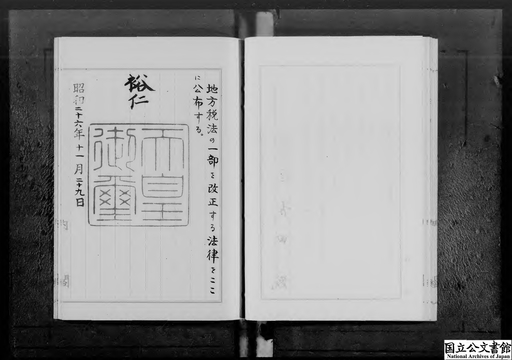 地方税法の一部を改正する法律をここ
に公布する。
裕仁
天皇
御璽
昭和二十六年十一月二十九日
国立公文書館
National Archives of Japan